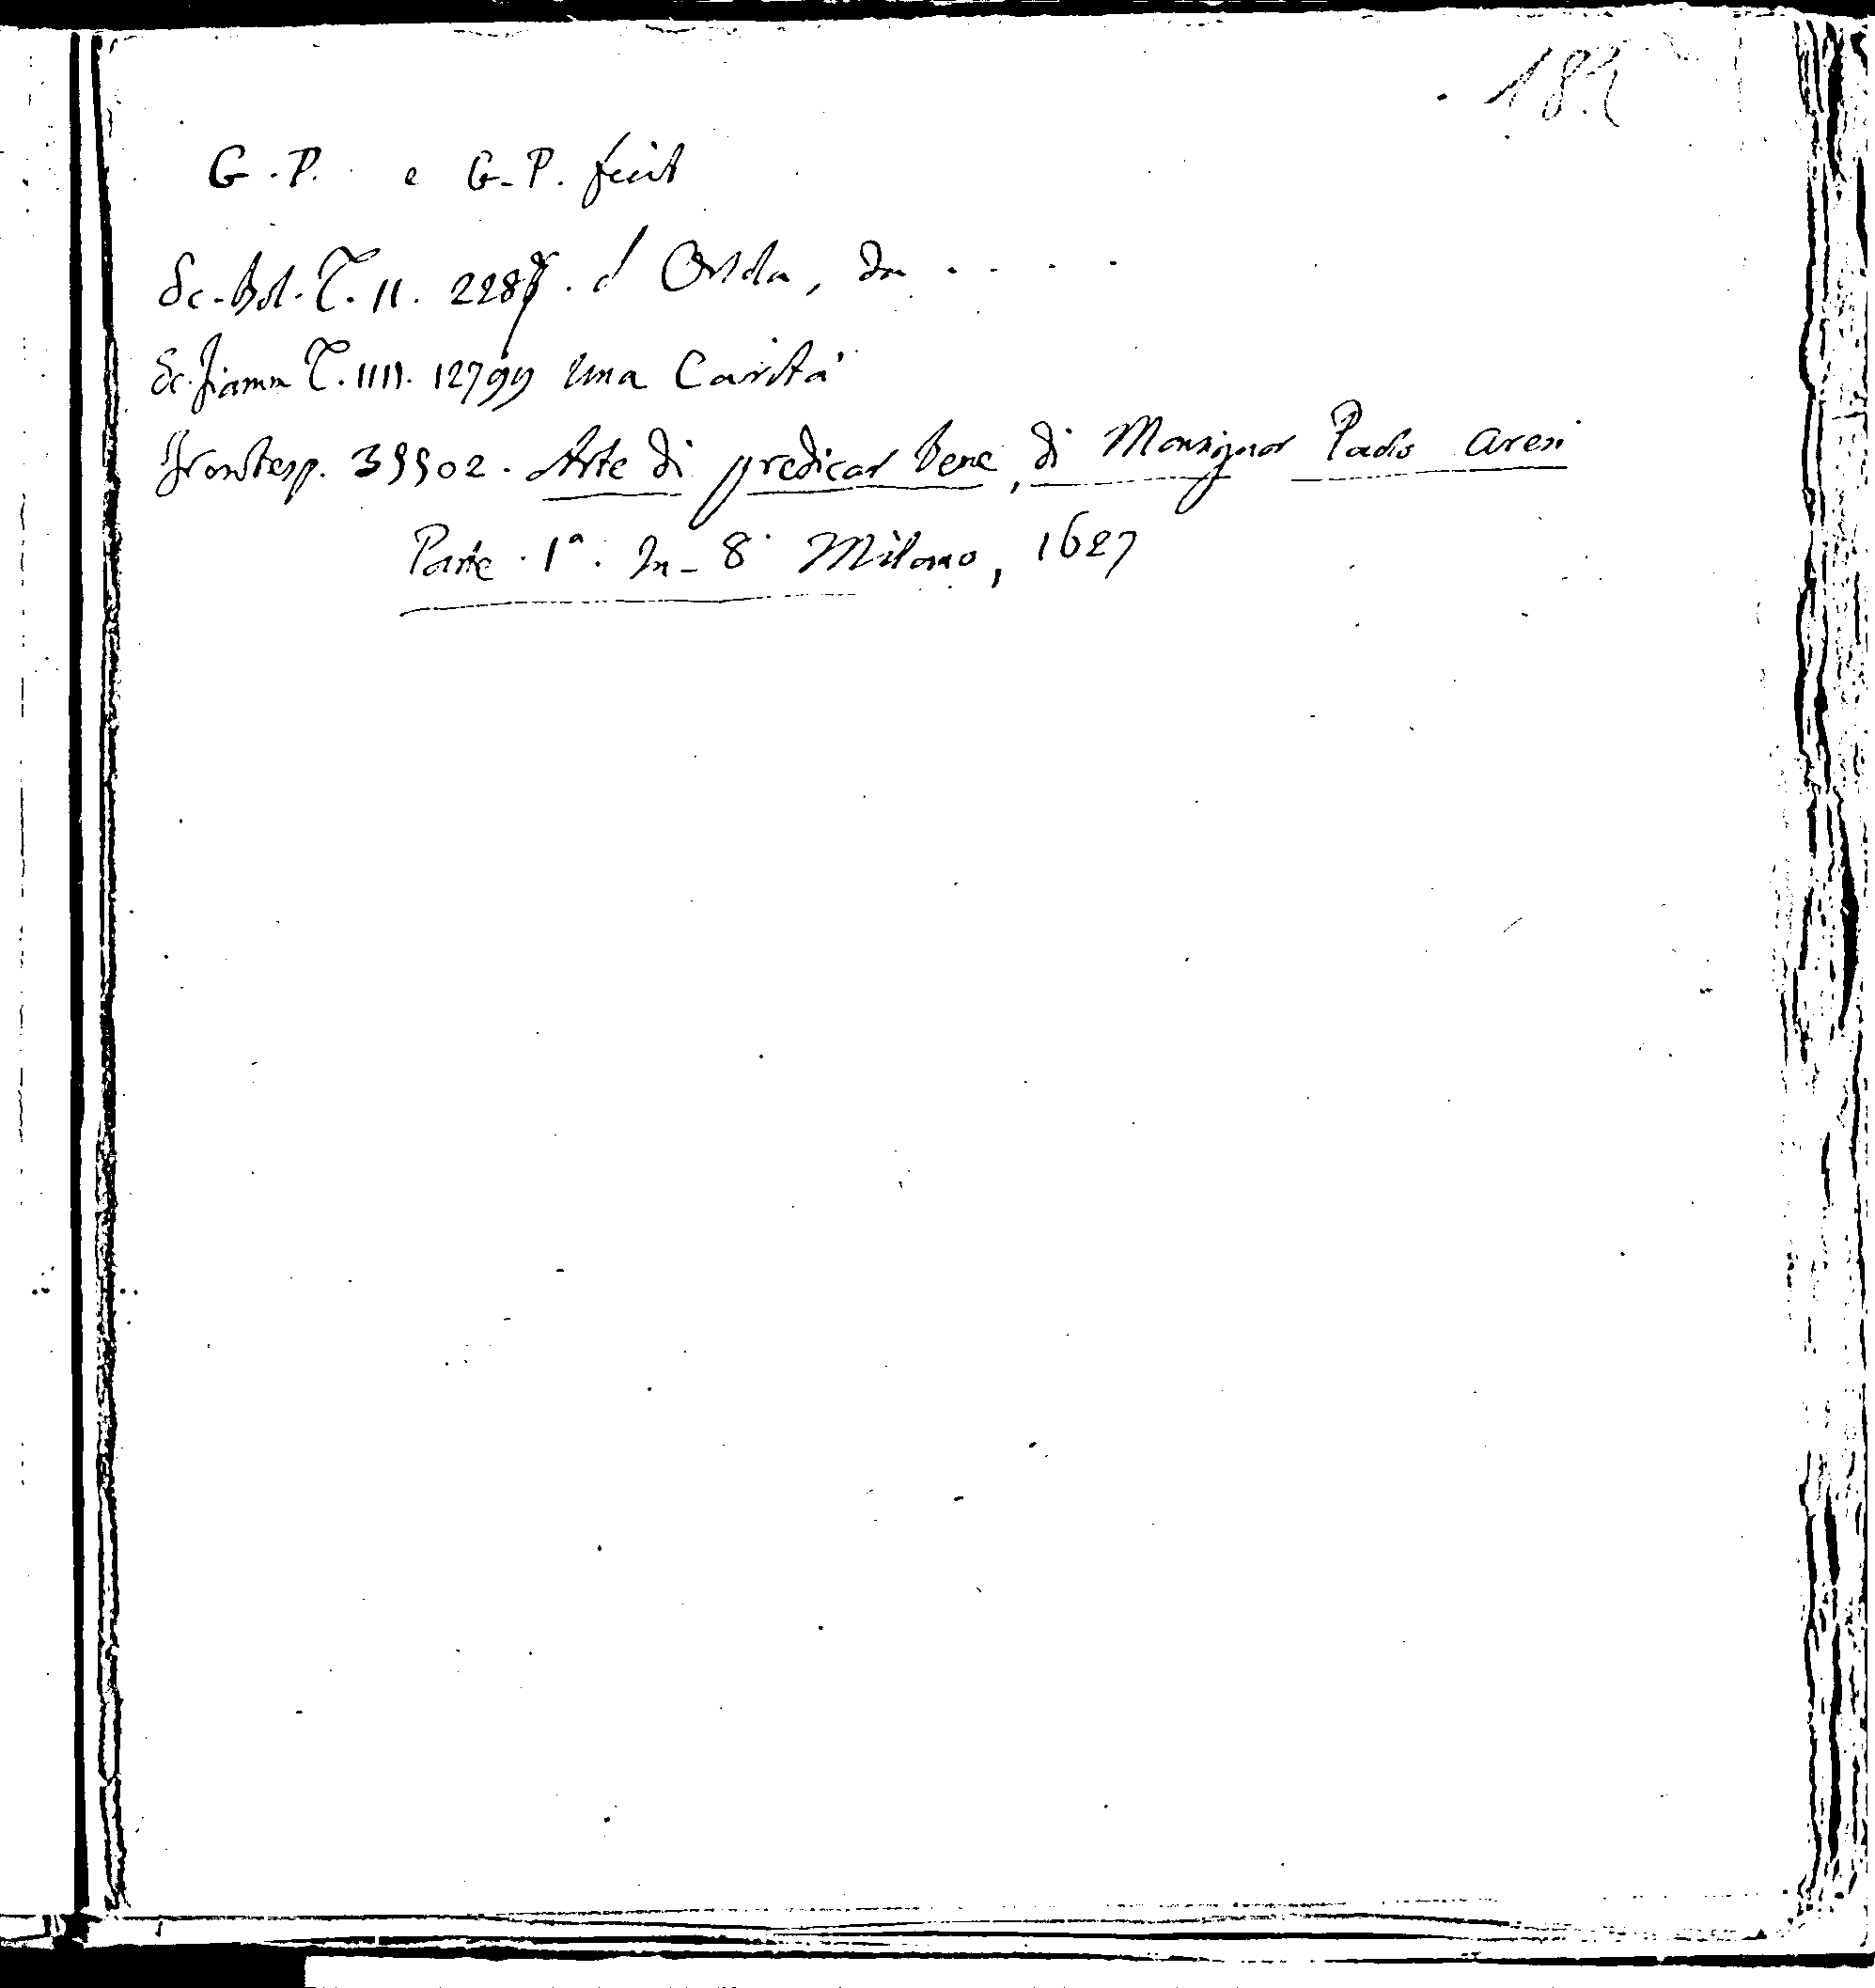 182
G. P. e G. P. fecit
Sc. Bol. T. II. 2287. d'Ovidio, da . . . .
Sc. fiamm T. IIII. 12799 una Carità
Frontesp. 39902. Arte di predicar bene, di Monsignor Paolo Aresi
Parte 1ª. In-8° Milano, 1627